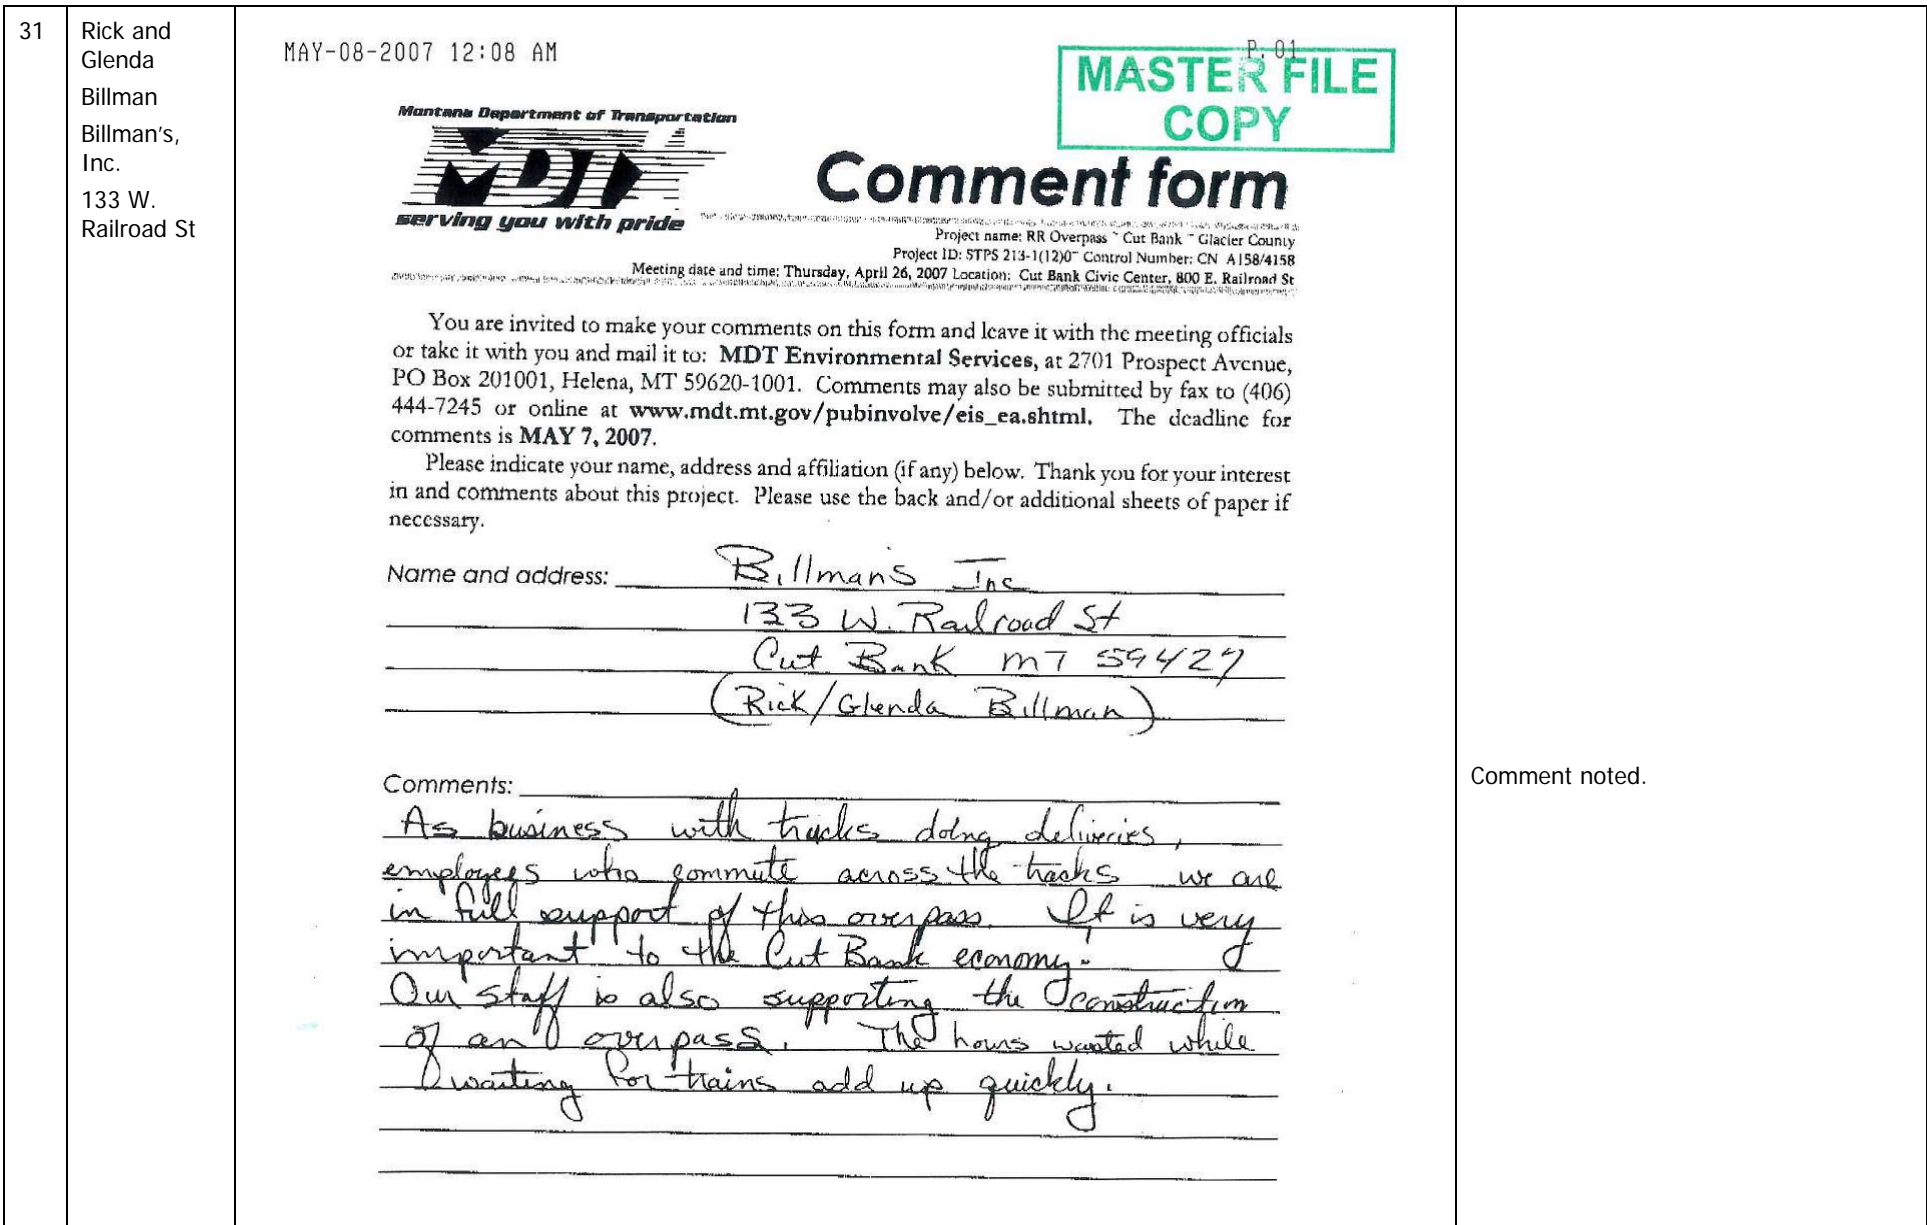 31
Rick and
Glenda
Billman
Billman's,
Inc.
133 W.
Railroad St
MAY-08-2007 12:08 AM
P.01
MASTER FILE
COPY
Montana Department of Transportation
MDT
serving you with pride
Comment form
Project name: RR Overpass ~ Cut Bank ~ Glacier County
Project ID: STPS 213-1(12)0~ Control Number: CN A158/4158
Meeting date and time: Thursday, April 26, 2007 Location: Cut Bank Civic Center, 800 E. Railroad St
You are invited to make your comments on this form and leave it with the meeting officials
or take it with you and mail it to: MDT Environmental Services, at 2701 Prospect Avenue,
PO Box 201001, Helena, MT 59620-1001. Comments may also be submitted by fax to (406)
444-7245 or online at www.mdt.mt.gov/pubinvolve/eis_ea.shtml. The deadline for
comments is MAY 7, 2007.
Please indicate your name, address and affiliation (if any) below. Thank you for your interest
in and comments about this project. Please use the back and/or additional sheets of paper if
necessary.
Name and address: Billman's Inc
133 W. Railroad St
Cut Bank MT 59427
(Rick/Glenda Billman)
Comments:
As business with trucks doing deliveries,
employees who commute across the tracks we are
in full support of this overpass. It is very
important to the Cut Bank economy!
Our staff is also supporting the construction
of an overpass. The hours wasted while
waiting for trains add up quickly.
Comment noted.